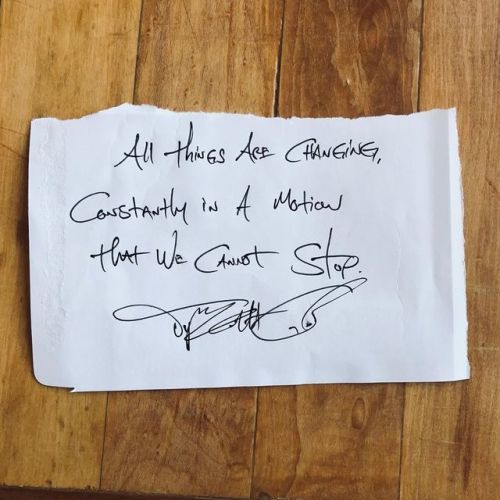 All things Are Changing,
Constantly in A Motion
that We Cannot Stop.